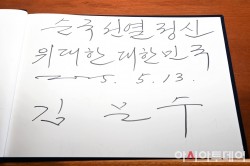 순국선열정신
위대한대한민국
5. 5. 13.
김문수
아시아투데이